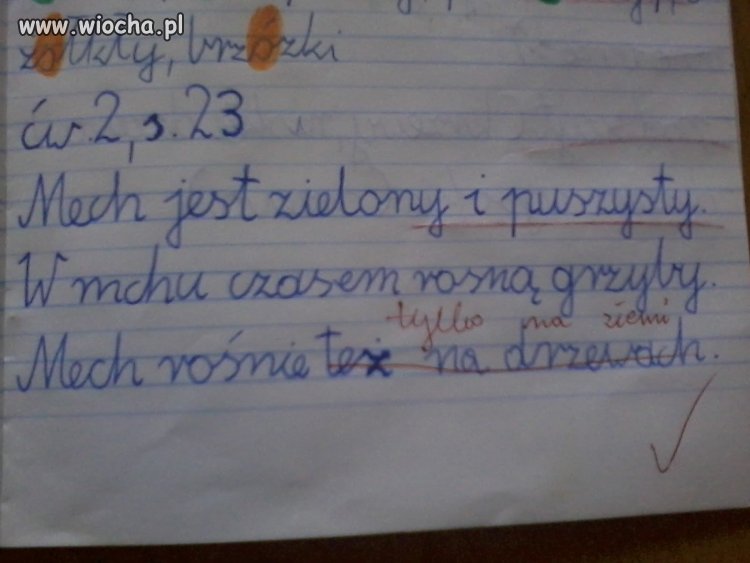 www.wiocha.pl
żółtkły, brzózki
ćw. 2, s. 23
Mech jest zielony i puszysty.
W mchu czasem rosną grzyby.
tylko na ziemi
Mech rośnie też na drzewach.